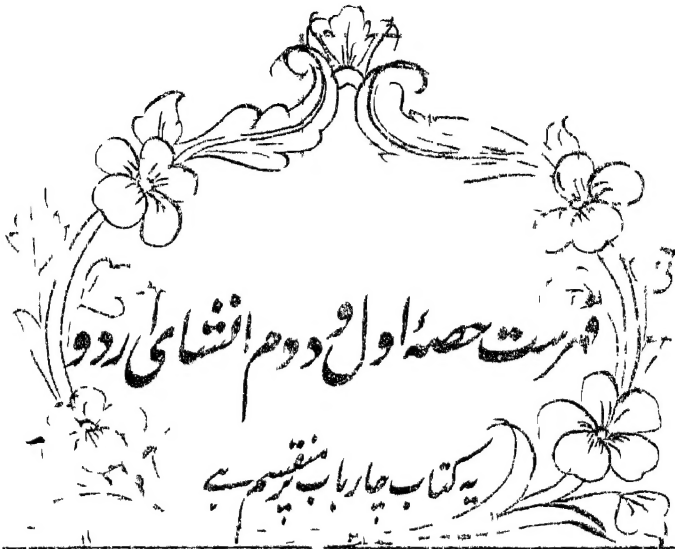 فہرست حصۂ اول و دوم انشای اردو
یہ کتاب چار باب پر منقسم ہے